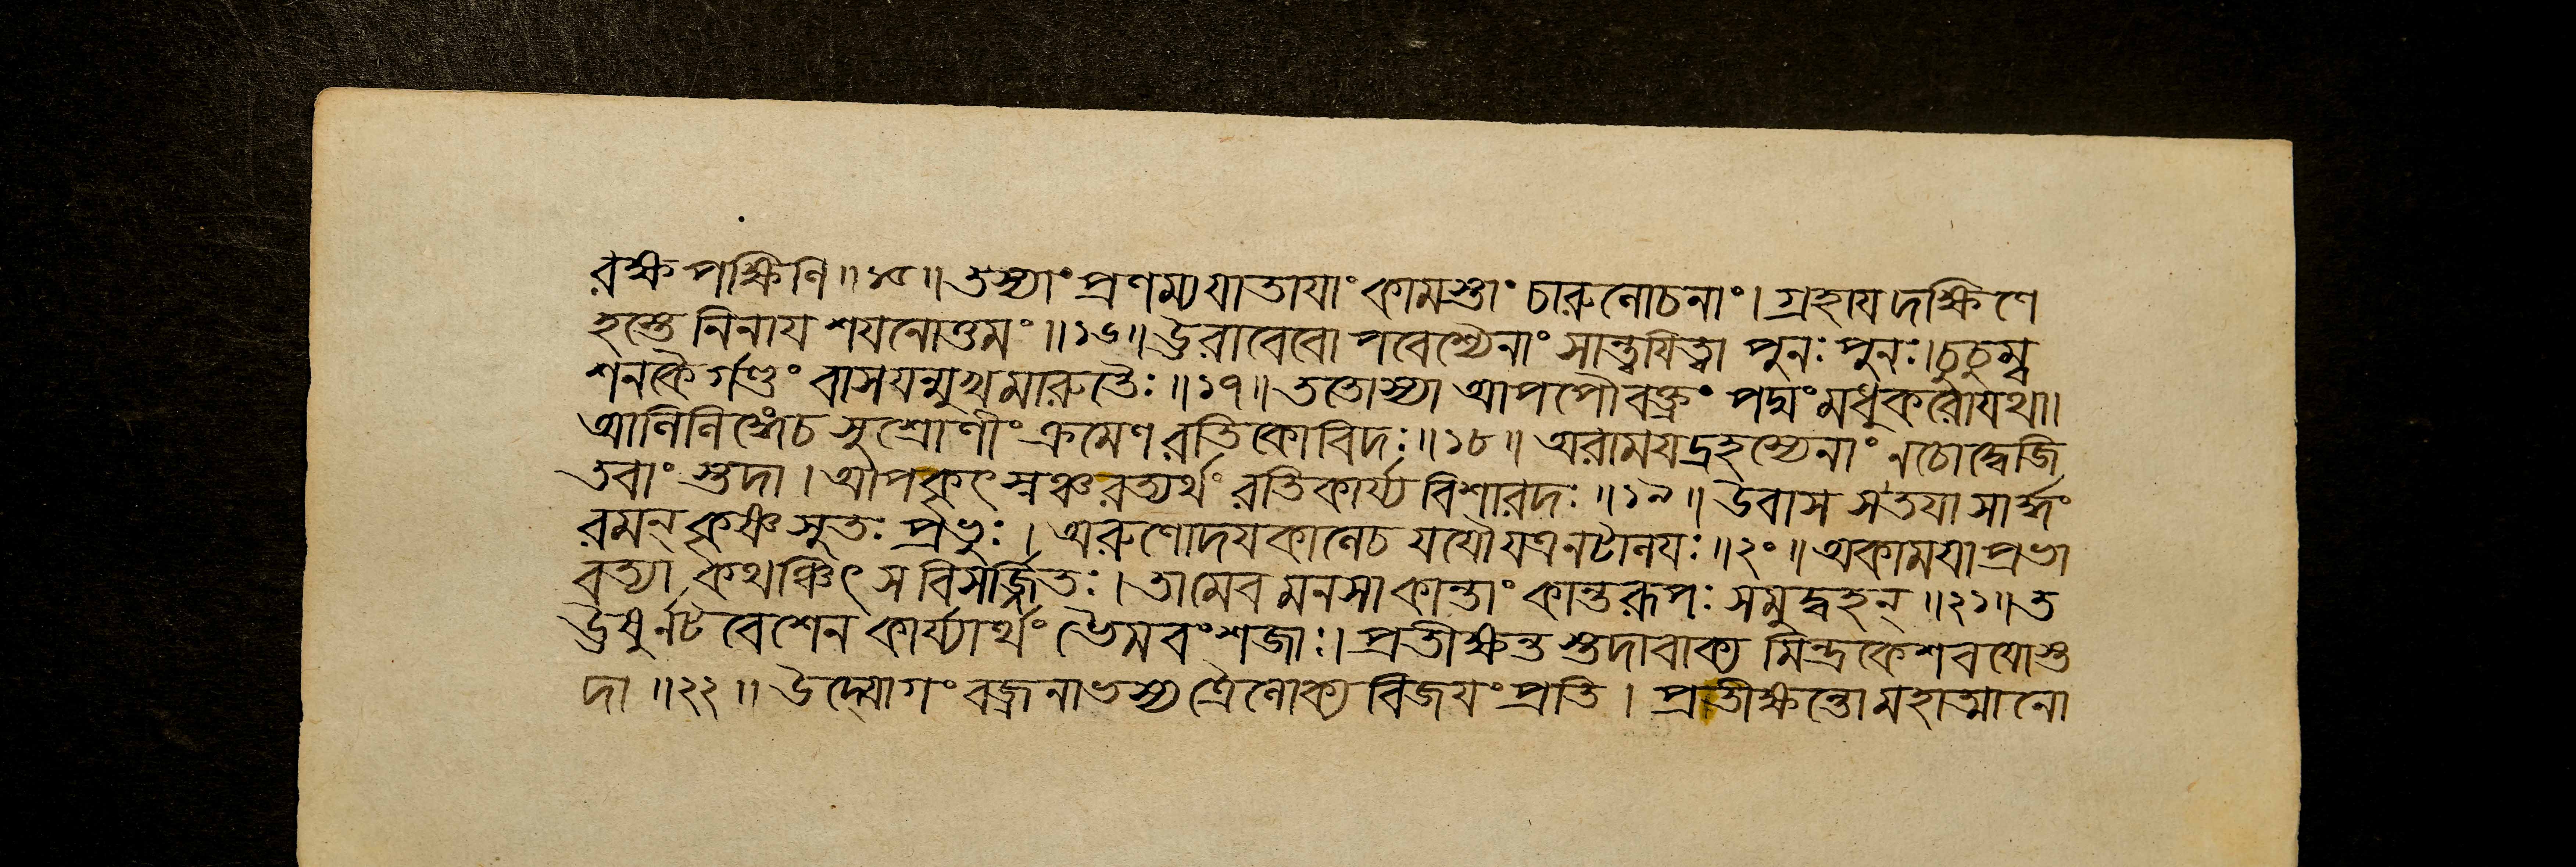 রক্ষ পক্ষিণি ॥ ১৫ ॥ তস্যাং প্রণম্য যাতাযাং কামস্তাং চারুলোচনাং । গ্রহায দক্ষিণে
হস্তে নিনায শযনোত্তমং ॥ ১৬ ॥ ঊরাবেবো পবেশ্যৈনাং সান্ত্বযিত্বা পুনঃ পুনঃ । চুচুম্ব
শনকৈ র্গণ্ডং বাসযন্মুখমারুতৈঃ ॥ ১৭ ॥ ততোস্যা আপপৌ বক্ত্রং পদ্মং মধুকরো যথা ।
আলিলিঙ্গেচ সুশ্রোণীং ক্রমেণ রতিকোবিদঃ ॥ ১৮ ॥ অরামযদ্রহস্যেনাং নচোদ্বেজি
তবাং স্তদা । আপকৃৎ স্নঞ্চ রত্যর্থং রতিকার্য্য বিশারদঃ ॥ ১৯ ॥ উবাস সতযা সার্দ্ধং
রমন্ কৃষ্ণসুতঃ প্রভুঃ । অরুণোদযকালেচ যযৌ যত্র নটালযঃ ॥ ২০ ॥ অকামযা প্রভা
বত্যা কথঞ্চিৎ স বিসর্জ্জিতঃ । তামেব মনসা কান্তাং কান্তরূপঃ সমুদ্বহন্ ॥ ২১ ॥ ত
ঊষুর্নট বেশেন কার্য্যার্থং ভৈমবংশজাঃ । প্রতীক্ষন্ত স্তদাবাক্য মিন্দ্রকেশবযোস্ত
দা ॥ ২২ ॥ উদ্যোগং বজ্রনাভস্য ত্রৈলোক্য বিজযং প্রতি । প্রতীক্ষন্তো মহাত্মানো